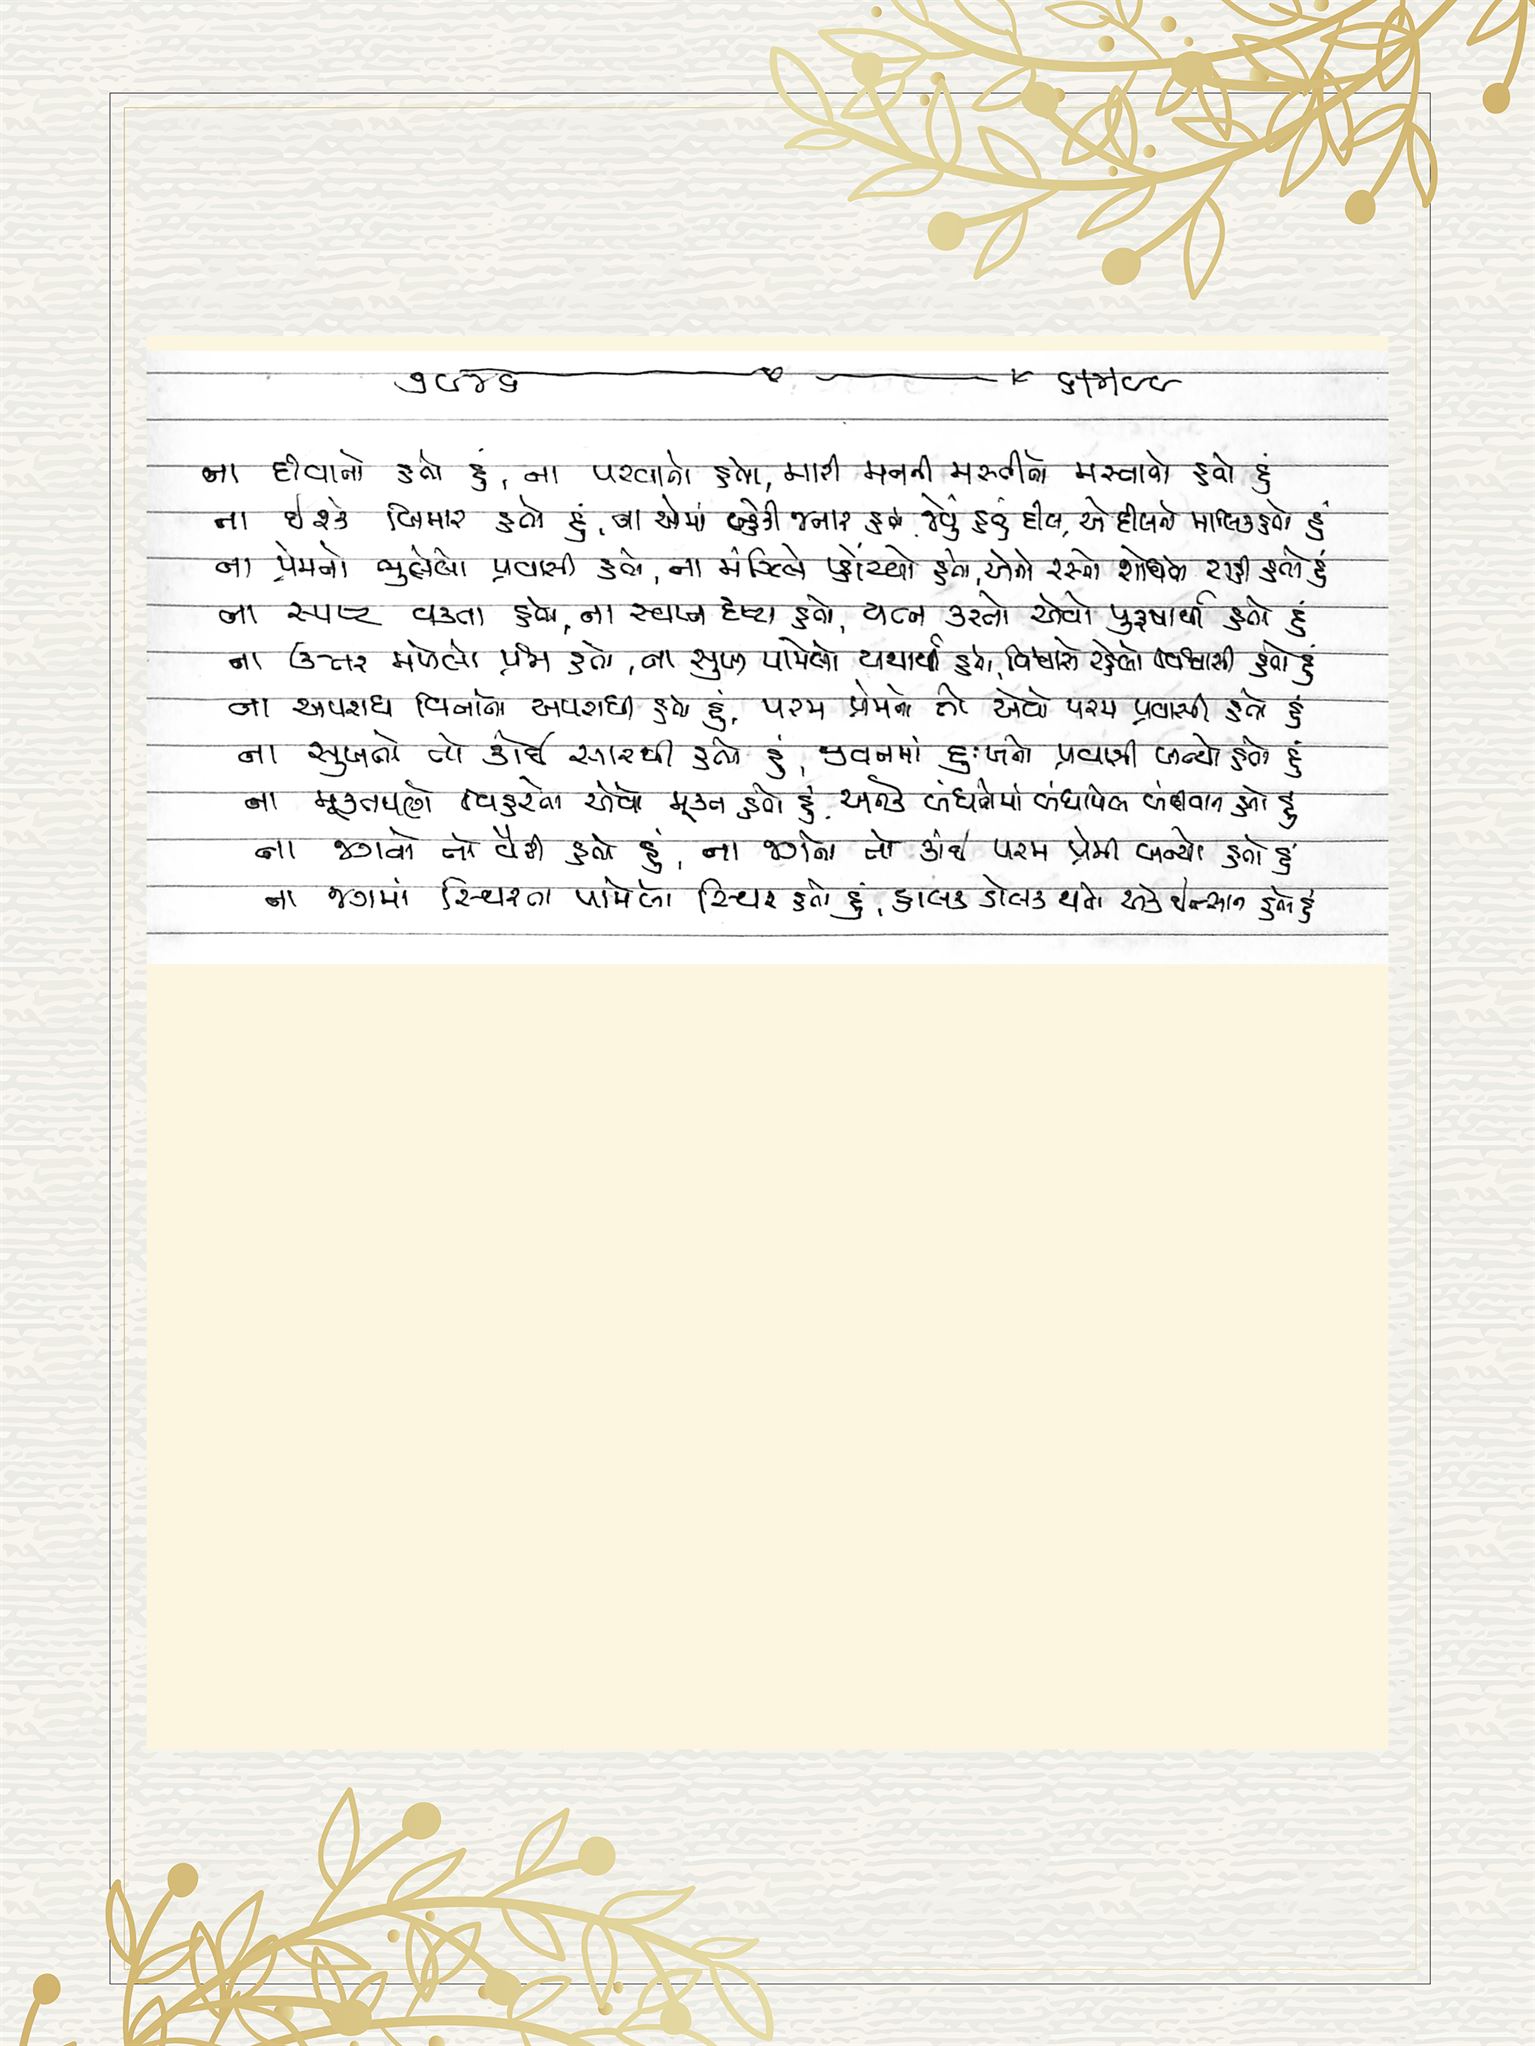 ના દીવાનો હતો હું, ના પરવાનો હતો, મારી મનની મસ્તીનો મસ્તાનો હતો હું
ના ઈશ્કે બિમાર હતો હું, ના એમાં જનાર હતો જેવું હતું દીલ, એ દીલનો માલિક હતો હું
ના પ્રેમનો ભુલેલો પ્રવાસી હતો, ના મંઝિલે પહોંચ્યો હતો, એનો રસ્તો શોધતો રાહી હતો હું
ના સ્પષ્ટ વક્તા હતો, ના સ્વપ્ન દૃષ્ટા હતો, યત્ન કરતો એવો પુરૂષાર્થી હતો હું
ના ઉત્તર મળેલો પ્રશ્ન હતો, ના સુખ પામેલો યથાર્થ હતો, વિશ્વાસે રહેલો વિશ્વાસી હતો હું
ના અપરાધ વિનાનો અપરાધી હતો હું, પરમ પ્રેમનો તો એવો પરમ પ્રવાસી હતો હું
ના સુખનો તો કોઈ સારથી હતો હું, જીવનમાં દુઃખનો પ્રવાસી બન્યો હતો હું
ના મૂક્તપણે વિહરતો એવો મૂક્ત હતો હું, અનેક બંધનોમાં બંધાયેલ બંધીવાન હતો હું
ના જગનો તો વૈરી હતો હું, ના જગનો તો કોઈ પરમ પ્રેમી બન્યો હતો હું
ના જગમાં સ્થિરતા પામેલો સ્થિર હતો હું, હાલક ડોલક થતો એક ઈન્સાન હતો હું